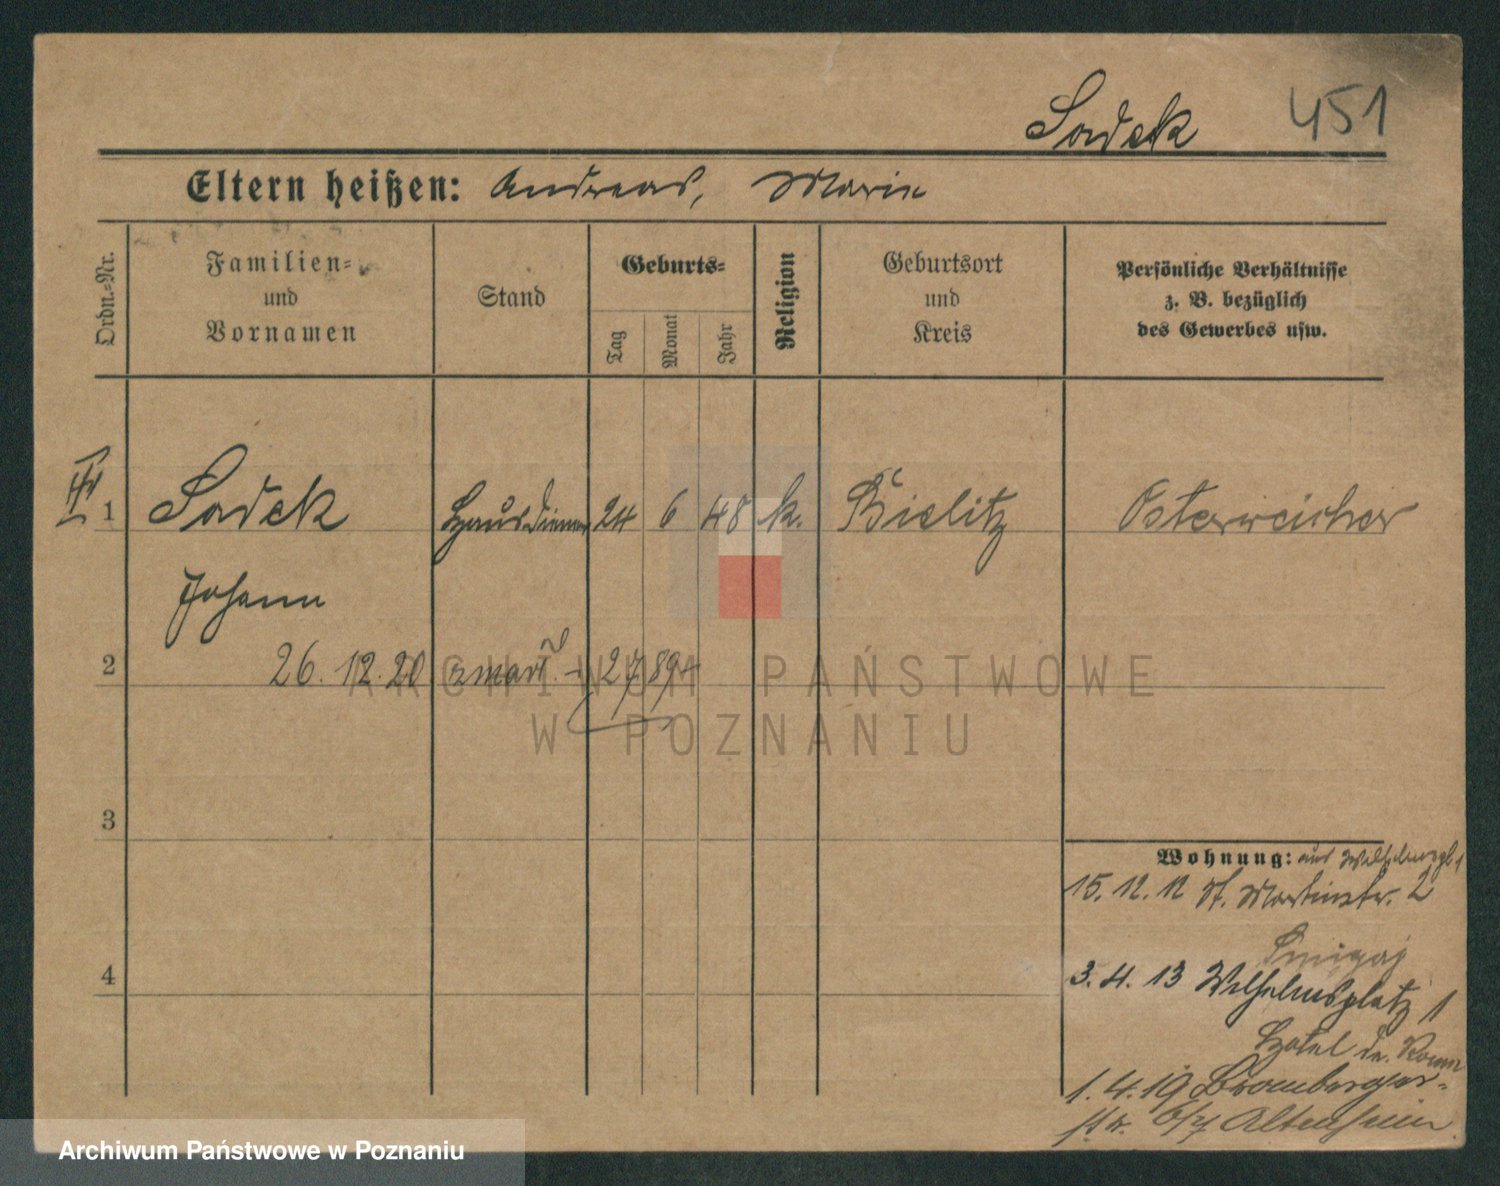 Sadek 451
Eltern heißen: Andreas, Marie
Ordn.-Nr.
Familien-
und
Vornamen
Stand
Geburts-
Tag
Monat
Jahr
Religion
Geburtsort
und
Kreis
Persönliche Verhältnisse
z. B. bezüglich
des Gewerbes usw.
1 Sadek Hausdiener 24 6 48 k. Bielitz Österreicher
Johann
2 26.12.20 zmarł - 27/894
3
4
Wohnung: aus Wilhelmspl. 1
15. 12. 12 St. Martinstr. 2
Smigaj
3. 4. 13 Wilhelmsplatz 1
Hotel de Rome
1. 4. 19 Bromberger-
str. 6/7 Altersheim
ARCHIWUM PAŃSTWOWE
W POZNANIU
Archiwum Państwowe w Poznaniu